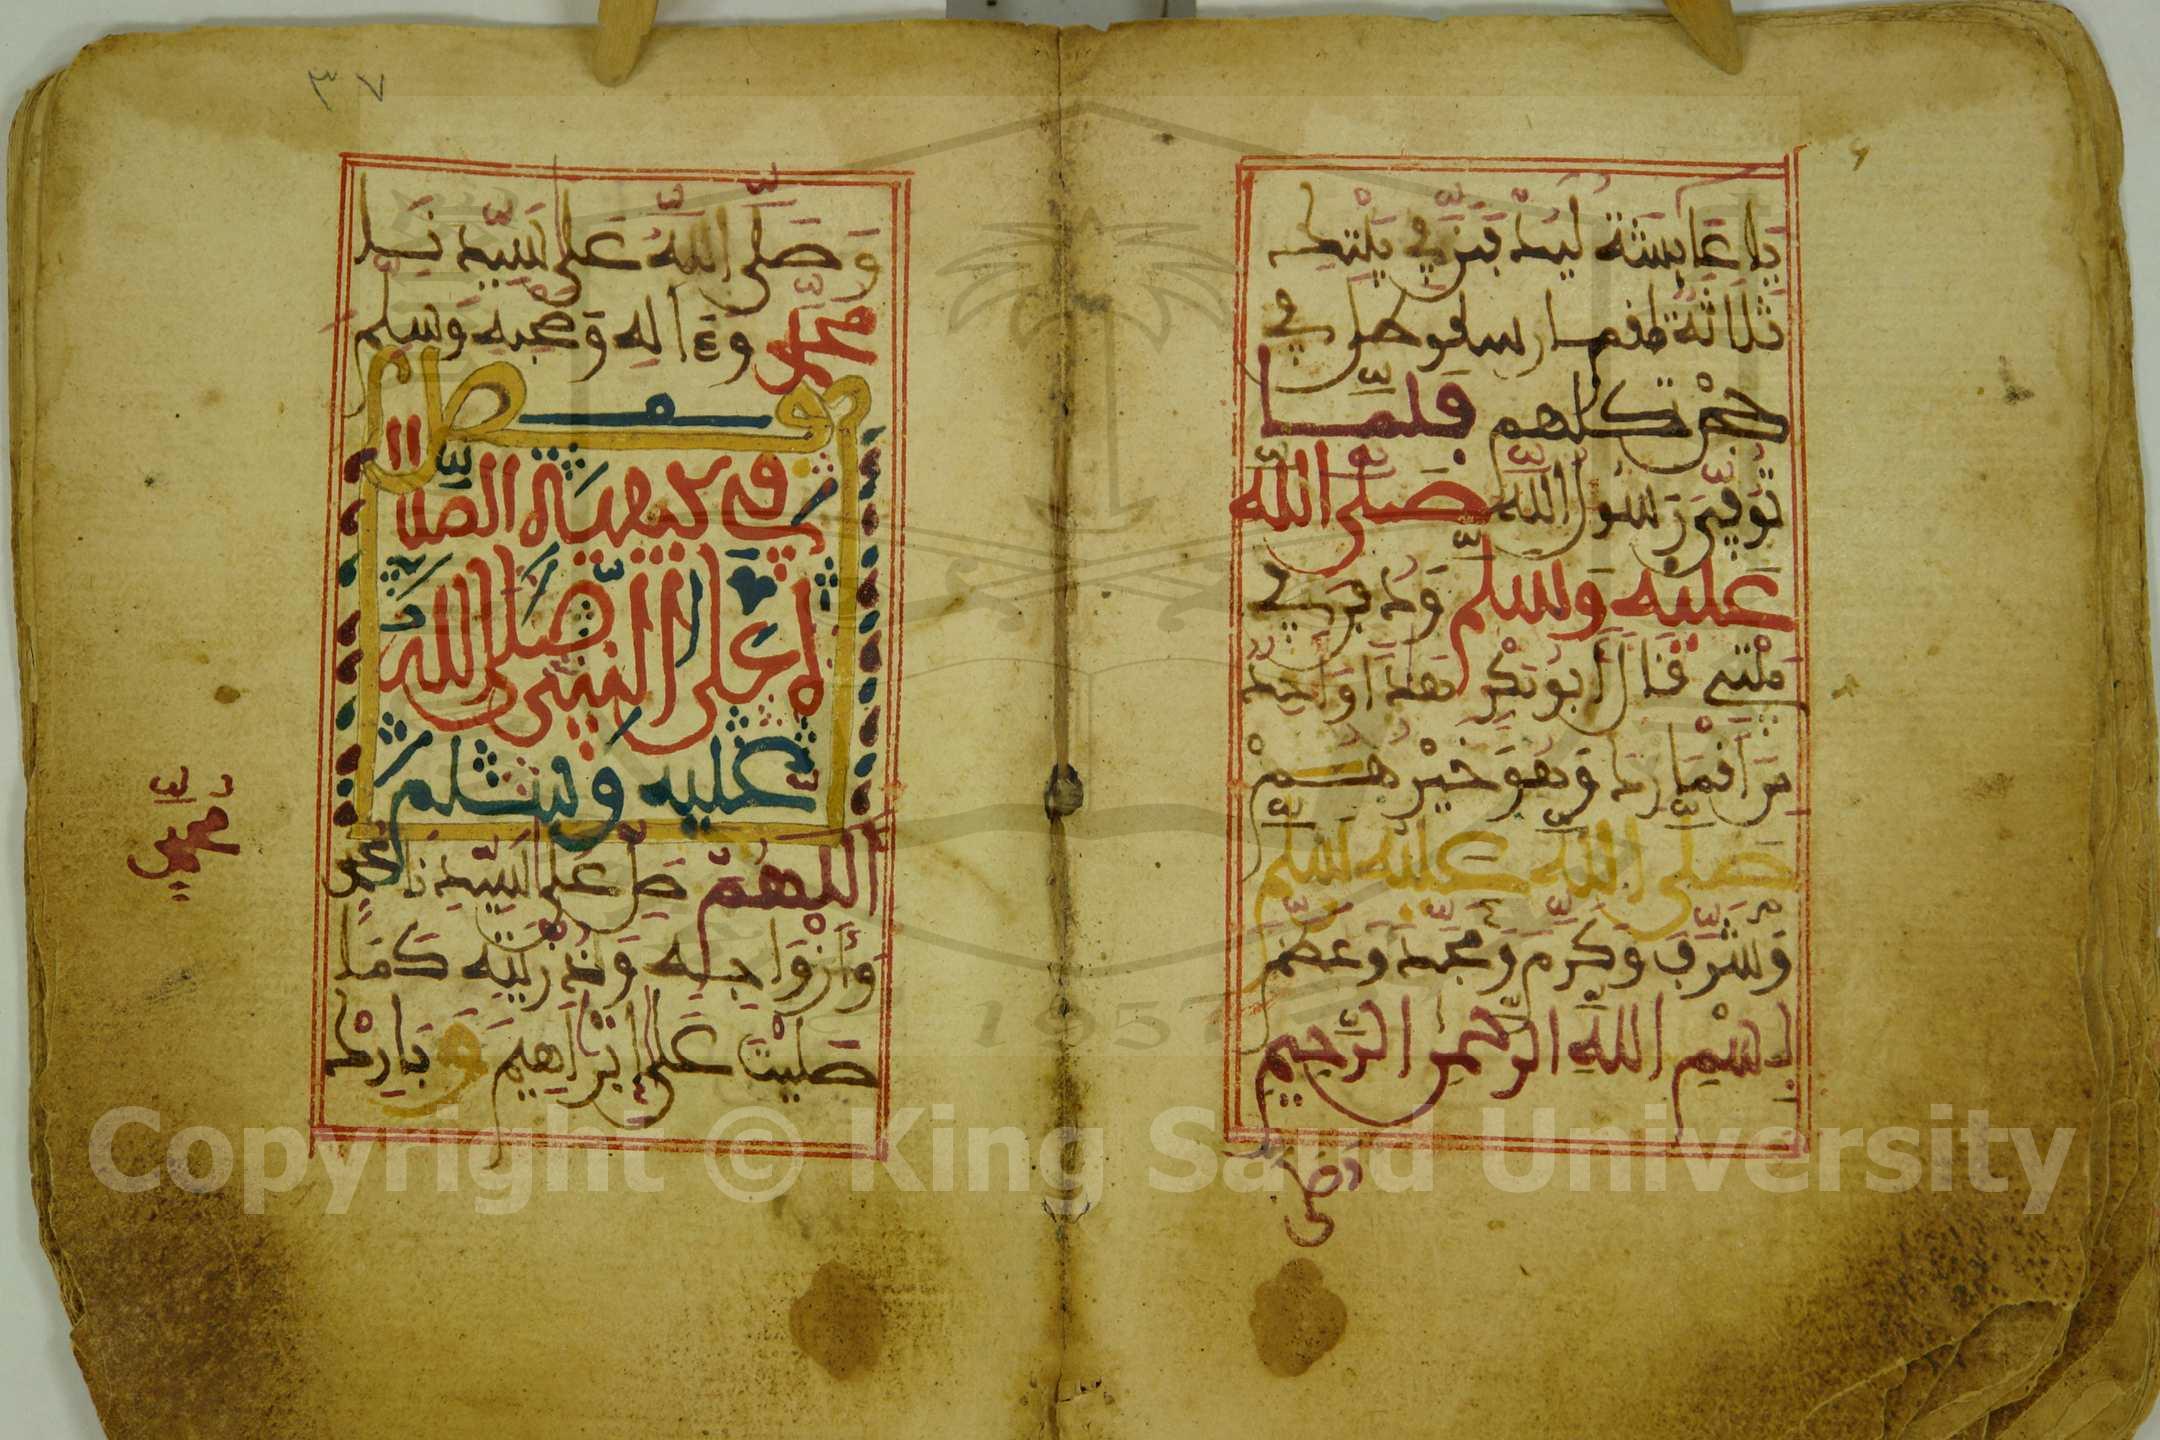 يا عايشة ليدفنن في بيتك
ثلاثة هم
كلهم فلما
توفي رسول الله صلى الله
عليه وسلم ودفن في
بيتي قال أبو بكر هذا واحد
من اقمارك وهو خيرهم
صلى الله عليه وسلم
وشرف وكرم ومجد وعظم
بسم الله الرحمن الرحيم
وصل
٣٧
وصلى الله على سيدنا
محمد وءاله وصحبه وسلم
فصل
في كيفية الصلاة
على النبي صلى الله
عليه وسلم
اللهم صل على سيدنا محمد
وأزواجه وذريته كما
صليت على ابراهيم وبارك
محمد
Copyright © King Saud University
1957